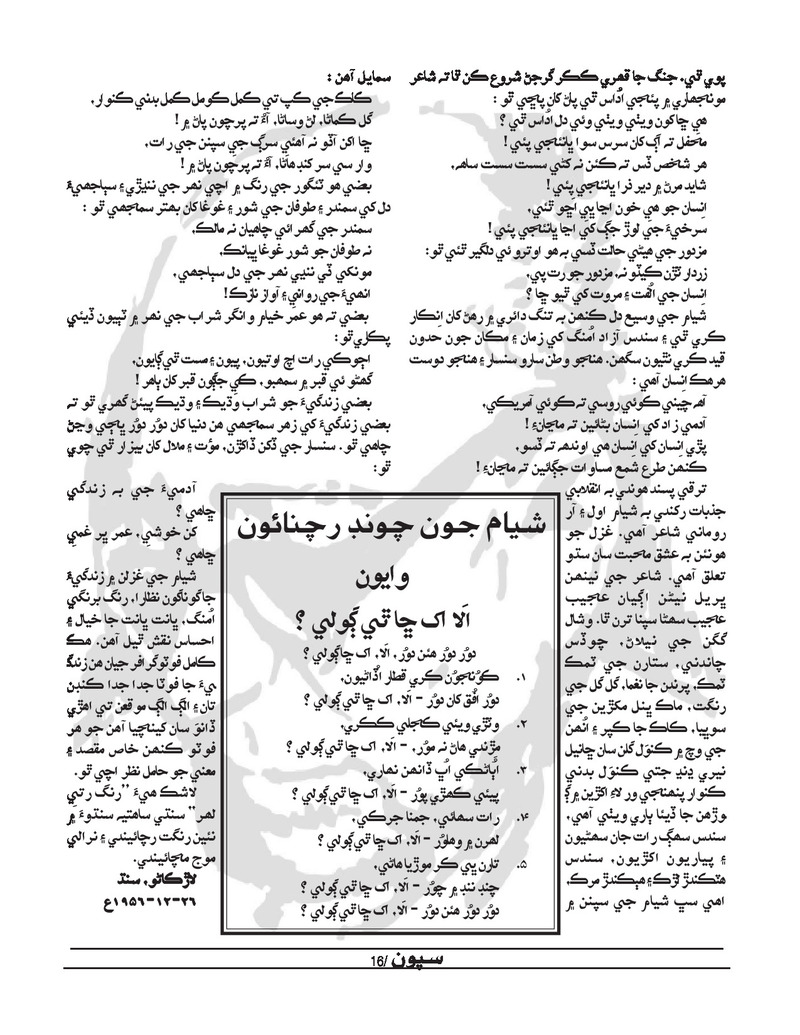 پوي ٿي. جنگ جا قهري ڪڪر گرجڻ شروع ڪن ٿا ته شاعر
مونجهاري ۾ پئجي اُداس ٿي پاڻ کان پڇي ٿو :
هي ڇا کون ويٺي ويٺي وئي دل اُداس ٿي ؟
محفل ته اڳ کان سرس سوا ڀانئجي پئي !
هر شخص ڏس ته ڪئن نه کڻي سست سست ساهه،
شايد مرڻ ۾ دير ذرا ڀانئجي پئي !
اِنسان جو هي خون اجا ڀي اڇو ٿئي،
سرخيءَ جي لوڙ جڳ کي اجا ڀانئجي پئي !
مزدور جي هيڻي حالت ڏسي به هو اوترو ئي دلگير ٿئي ٿو:
زردار نٿڙن ڪيٽو نه، مزدور جو رت پي،
اِنسان جي اُلفت ۽ مروت کي ٿيو ڇا ؟
شيام جي وسيع دل ڪنهن به تنگ دائري ۾ رهڻ کان اِنڪار
ڪري ٿي ۽ سندس آزاد اُمنگ کي زمان ۽ مڪان جون حدون
قيد ڪري نٿيون سگهن. هنجو وطن سارو سنسار ۽ هنجو دوست
هرهڪ اِنسان آهي :
آهه چيني ڪوئي روسي ته ڪوئي آمريڪي،
آدمي زاد کي اِنسان بڻائين ته مڃانءِ !
پڙي اِنسان کي اِنسان هي اوندهه ته ڏسو،
ڪنهن طرح شمع مساوات جڳائين ته مڃانءِ !
ترقي پسند هوندي به انقلابي
جذبات رکندي به شيام اول ۽ آر
روماني شاعر آهي. غزل جو
هونئن به عشق محبت سان سڌو
تعلق آهي. شاعر جي نينهن
ڀريل نيڻن اڳيان عجيب
عجيب سهڻا سپنا ترن ٿا. وشال
گگن جي نيلاڻ، چوڏس
چاندني، ستارن جي ٽمڪ
ٽمڪ، پرندن جا نغما، گل گل جي
رنگت، ماڪ ڀنل مکڙين جي
سوڀيا، ڪاڪ جا ڪپر ۽ اُنهن
جي وچ ۾ ڪنول گلن سان ڇانيل
نيري ڍنڍ جتي ڪنول بدني
ڪنوار پنهنجي ور لاءِ اکڙين ۾
وڙهن جا ڏيئا ٻاري ويٺي آهي،
سندس سهاڳ رات جان سهڻيون
۽ پياريون اکڙيون، سندس
هٽڪندڙ لڙڪ ۽ مِهڪندڙ مرڪ،
اهي سڀ شيام جي سپنن ۾
سمايل آهن :
ڪاڪ جي ڪپ تي ڪمل ڪومل ڪمل بدني ڪنوار،
گل ڪماڻا، لڻ وساڻا، آءُ ته پرچون پاڻ ۾ !
ڇا اکن آڏو نه آهئي سرڳ جي سپنن جي رات،
وار سي سر کنڊ هاڻا، آءُ ته پرچون پاڻ ۾ !
بعضي هو ٽنگور جي رنگ ۾ اچي نهر جي ننيڙي ۽ سٻاجهيءَ
دل کي سمندر ۽ طوفان جي شور ۽ غوغا کان بهتر سمجهي ٿو :
سمندر جي گهرائي چاهيان نه مالڪ،
نه طوفان جو شور غوغا ڀيانڪ،
مونکي ڏي ننڍي نهر جي دل سٻاجهي،
انهيءَ جي رواني ۽ آواز نازڪ !
بعضي ته هو عمر خيام وانگر شراب جي نهر ۾ ٽٻيون ڏيئي
پڪاري ٿو :
اڄوڪي رات اچ اوتيون، پيون ۽ مست ٿي ڳايون،
گهڻو ئي قبر ۾ سمهبو، ڪي جڳون قبر کان ٻاهر !
بعضي زندگيءَ جو شراب وڌيڪ ۽ وڌيڪ پيئڻ گهري ٿو ته
بعضي زندگيءَ کي زهر سمجهي هن دنيا کان دوُر دوُر ڀڄي وڃڻ
چاهي ٿو. سنسار جي ڏکن ڏاکڙن، موُت ۽ ملال کان بيزار ٿي چوي
ٿو :
آدميءَ جي به زندگي
ڇاهي ؟
کن خوشي، عمر ڀر غمي
ڇاهي ؟
شيام جي غزلن ۾ زندگيءَ
جا گوناگون نظارا، رنگ برنگي
اُمنگ، ڀانت ڀانت جا خيال ۽
احساس نقش ٿيل آهن. هڪ
ڪامل فوٽوگرافر جيان هن زندگي
يءَ جا فوٽا جدا جدا ڪنڊن
تان ۽ الڳ الڳ موقعن تي اهڙي
ڏانوَ سان ڪينچيا آهن جو هر
فوٽو ڪنهن خاص مقصد ۽
معنيٰ جو حامل نظر اچي ٿو.
لاشڪ هيءَ ”رنگ رتي
لهر“ سنڌي ساهتيه سنتوءَ ۾
نئين رنگت رچائيندي ۽ نرالي
موج مچائيندي.
لاڙڪاڻو، سنڌ
۲۶-۱۲-۱۹۵۶ع
شيام جون چونڊ رچنائون
وايون
اَلا اک ڇا ٿي ڳولي ؟
دوُر دوُر هئن دوُر، اَلا، اک ڇا ڳولي ؟
۱. ڪوُنجوُن ڪري قطار اُڏاڻيون،
دوُر اُفق کان دوُر - اَلا، اک ڇا ٿي ڳولي ؟
۲. وٺڙي ويئي ڪاڄلي ڪڪري،
مڙندي هاڻ نه موُر، - اَلا، اک ڇا ٿي ڳولي ؟
۳. اُڀاڻڪي اُڀ ڏانهن نهاري،
پيئي ڪهڙي پوُر - اَلا، اک ڇا ٿي ڳولي ؟
۴. رات سهائي، جمنا جرڪي،
لهرن ۾ وهلوُر - اَلا، اک ڇا ٿي ڳولي ؟
۵. تارن پي ڪر موڙيا هاڻي،
چنڊ ننڊ ۾ چوُر - اَلا، اک ڇا ٿي ڳولي ؟
دوُر دوُر هئن دوُر - اَلا، اک ڇا ٿي ڳولي ؟
سپون /16